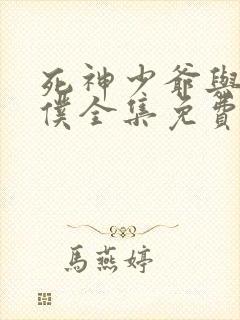 死神少爺與
僕全集免費
馬燕婷